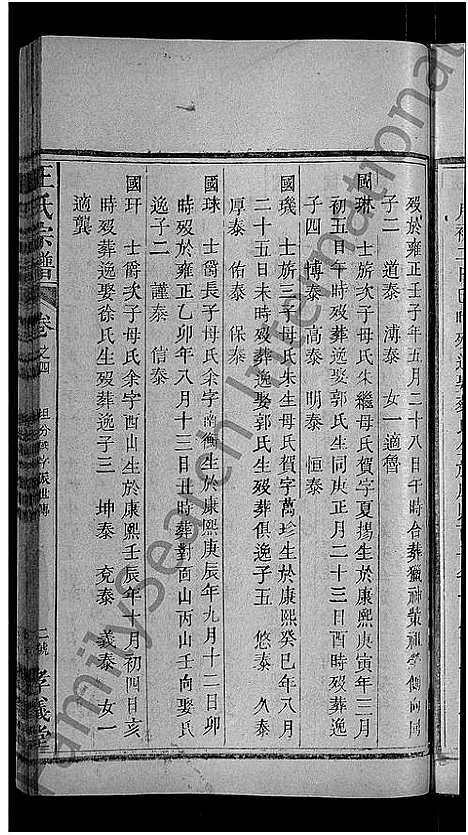 歿於雍正壬子年五月二十八日午時合葬獵神葉祖塋側向同
子二 道泰 溥泰 女一適魯
國琳 士旂次子母氏朱繼母氏賀字夏揚生於康熙庚寅年三月
初五日午時歿葬逸娶郭氏生同庚正月二十三日酉時歿葬逸
子四 博泰 高泰 明泰 恒泰
國璣 士旂三子母氏朱生母氏賀字萬珍生於康熙癸巳年八月
二十五日未時歿葬逸娶郭氏生歿葬俱逸子五 悠泰 久泰
厚泰 佑泰 保泰
國珠 士爵長子母氏余字南衡生於康熙庚辰年九月十二日卯
時歿於雍正乙卯年八月十三日丑時葬對面山丙山壬向娶氏
逸子二 謹泰 信泰
國玕 士爵次子母氏余字西山生於康熙壬辰年十月初四日亥
時歿葬逸娶徐氏生歿葬逸子三 坤泰 兗泰 義泰 女一
適龔
王氏宗譜 卷之四 二號 孝義堂
FamilySearch International